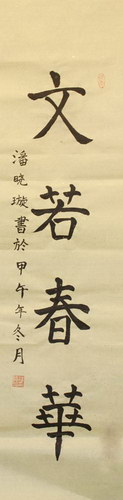 文若春華
潘曉璇書於甲午年冬月